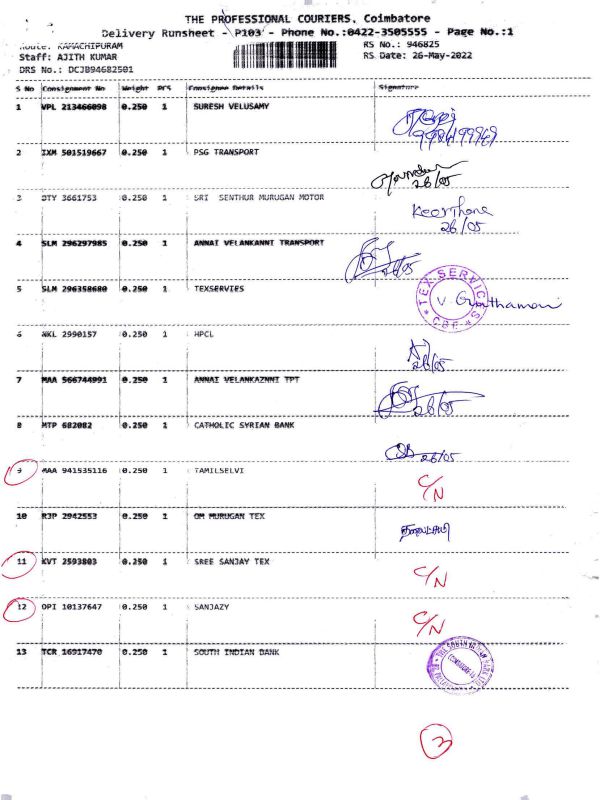 THE PROFESSIONAL COURIERS, Coimbatore
Delivery Runsheet - P103 - Phone No.:0422-3505555 - Page No.:1
Route: RAMACHIPURAM RS No.: 946825
Staff: AJITH KUMAR RS Date: 26-May-2022
DRS No.: DCJB94682501
S No Consignment No Weight PCS Consignee Details Signature
1 VPL 213466098 0.250 1 SURESH VELUSAMY
2 IXM 501519667 0.250 1 PSG TRANSPORT
26/05
3 DTY 3661753 0.250 1 SRI SENTHUR MURUGAN MOTOR Keerthana
26/05
4 SLM 296297985 0.250 1 ANNAI VELANKANNI TRANSPORT
26/05
5 SLM 296358680 0.250 1 TEXSERVIES
TEX SERVICES
CBE
6 NKL 2990157 0.250 1 HPCL
26/05
7 MAA 566744991 0.250 1 ANNAI VELANKAZNNI TPT
26/05
8 MTP 682082 0.250 1 CATHOLIC SYRIAN BANK
26/05
9 MAA 941535116 0.250 1 TAMILSELVI C/N
10 RJP 2942553 0.250 1 OM MURUGAN TEX
11 KVT 2593803 0.250 1 SREE SANJAY TEX C/N
12 OPI 10137647 0.250 1 SANJAZY C/N
13 TCR 16917470 0.250 1 SOUTH INDIAN BANK
3